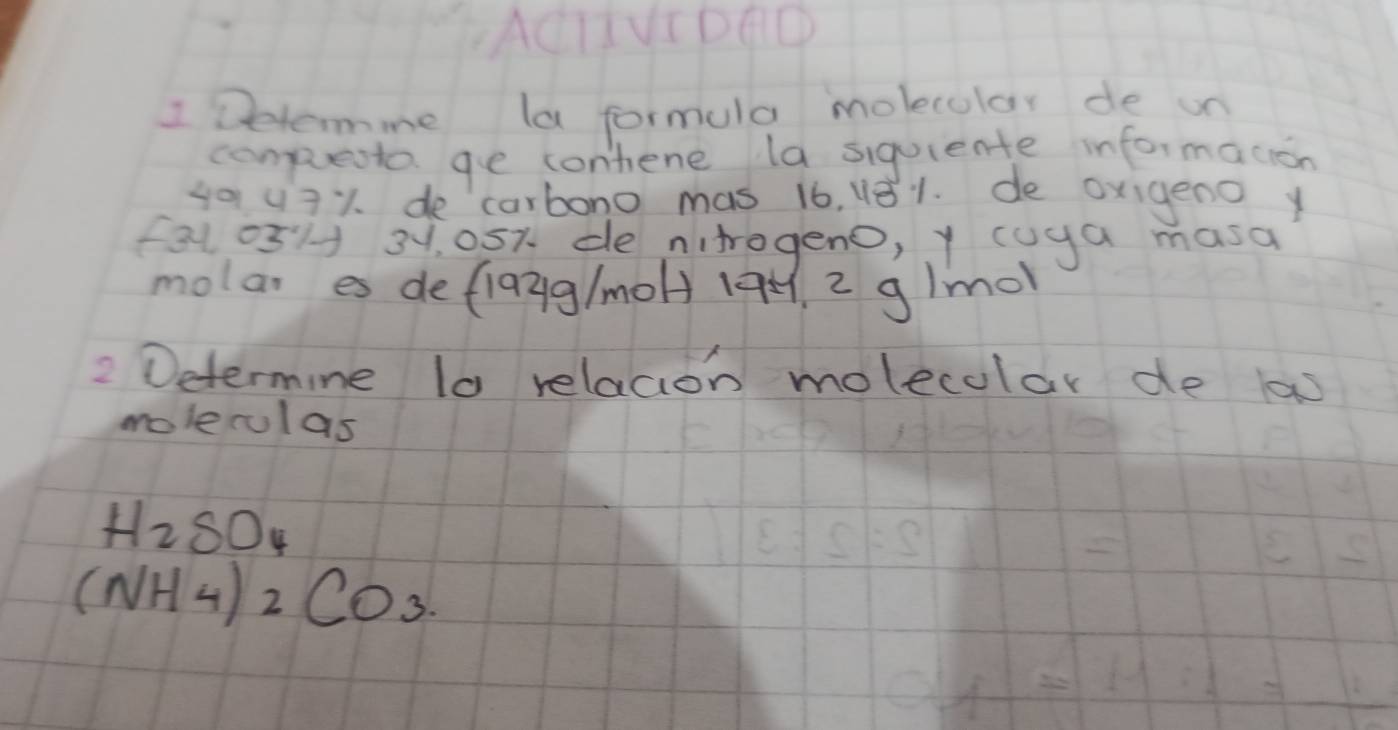 ACTIVIDAD
1 Determine la formula molecular de un
compuesto que contiene la siguiente información
49.47% de carbono mas 16.48%. de oxigeno y
34.05% de nitrogeno, y cuya masa
molar es de 194.2 g/mol
2 Determine la relación molecular de las
moleculas
H2SO4
(NH4)2CO3.